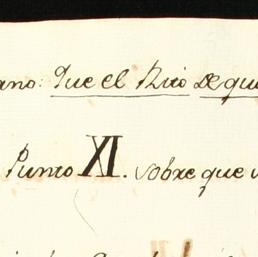 ano: Que el Rito de qu
Punto XI. sobre que